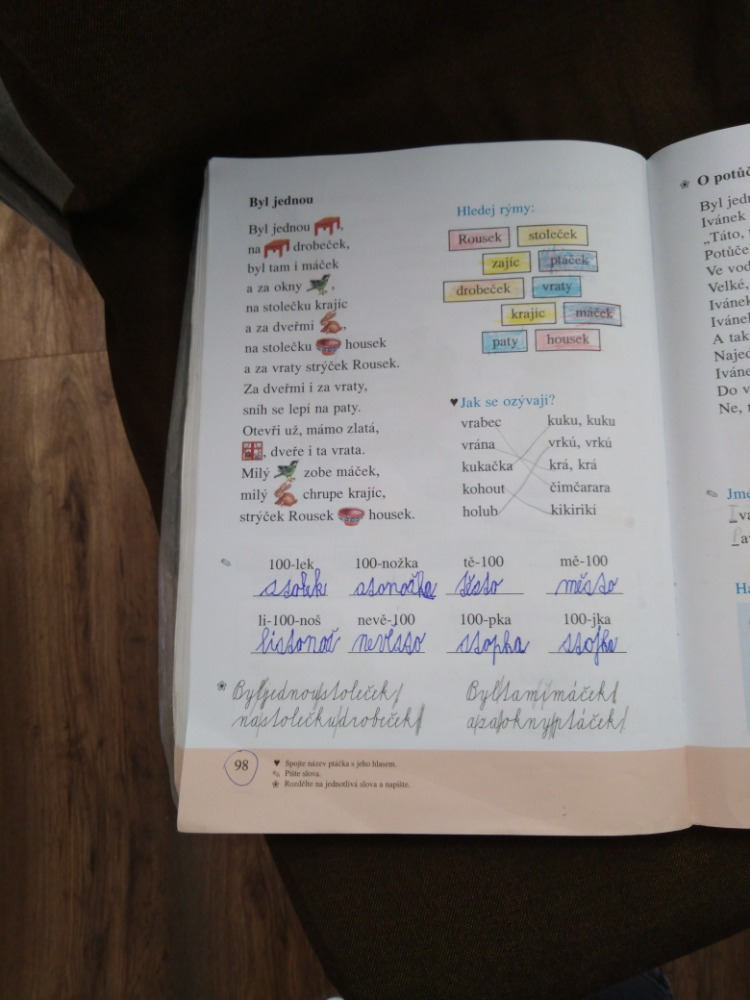 Byl jednou
Byl jednou ,
na drobeček,
byl tam i máček
a za okny ,
na stolečku krajíc
a za dveřmi ,
na stolečku housek
a za vraty strýček Rousek.
Za dveřmi i za vraty,
sníh se lepí na paty.
Otevři už, mámo zlatá,
, dveře i ta vrata.
Milý zobe máček,
milý chrupe krajíc,
strýček Rousek housek.
Hledej rýmy:
Rousek stoleček
zajíc ptáček
drobeček vraty
krajíc máček
paty housek
♥ Jak se ozývají?
vrabec kuku, kuku
vrána vrkú, vrkú
kukačka krá, krá
kohout čimčarara
holub kikiriki
100-lek 100-nožka tě-100 mě-100
stolek stonožka těsto město
li-100-noš nevě-100 100-pka 100-jka
listonoš nevěsto stopka stojka
Byl/jednou/stoleček/ Byl/tam/i/máček/
na/stolečku/drobeček/ a/za/okny/ptáček/
98
♥ Spojte název ptáčka s jeho hlasem.
Pište slova.
Rozdělte na jednotlivá slova a napište.
O
Byl
Ivánek
„Táto,
Potůče
Ve vod
Velké,
Ivánek
Ivánek
A tak
Najed
Iváne
Do v
Ne,